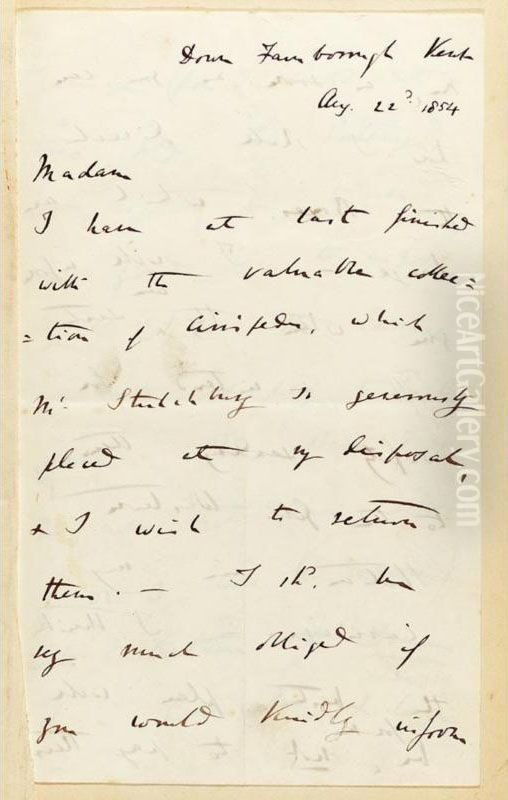 Down Farnborough Kent
Aug. 22d. 1854
Madam
I have at last finished
with the valuable collec=
=tion of Cirripedes, which
Mr Stutchbury so generously
placed at my disposal,
& I wish to return
them. — I shd. be
very much obliged if
you would kindly inform
NiceArtGallery.com